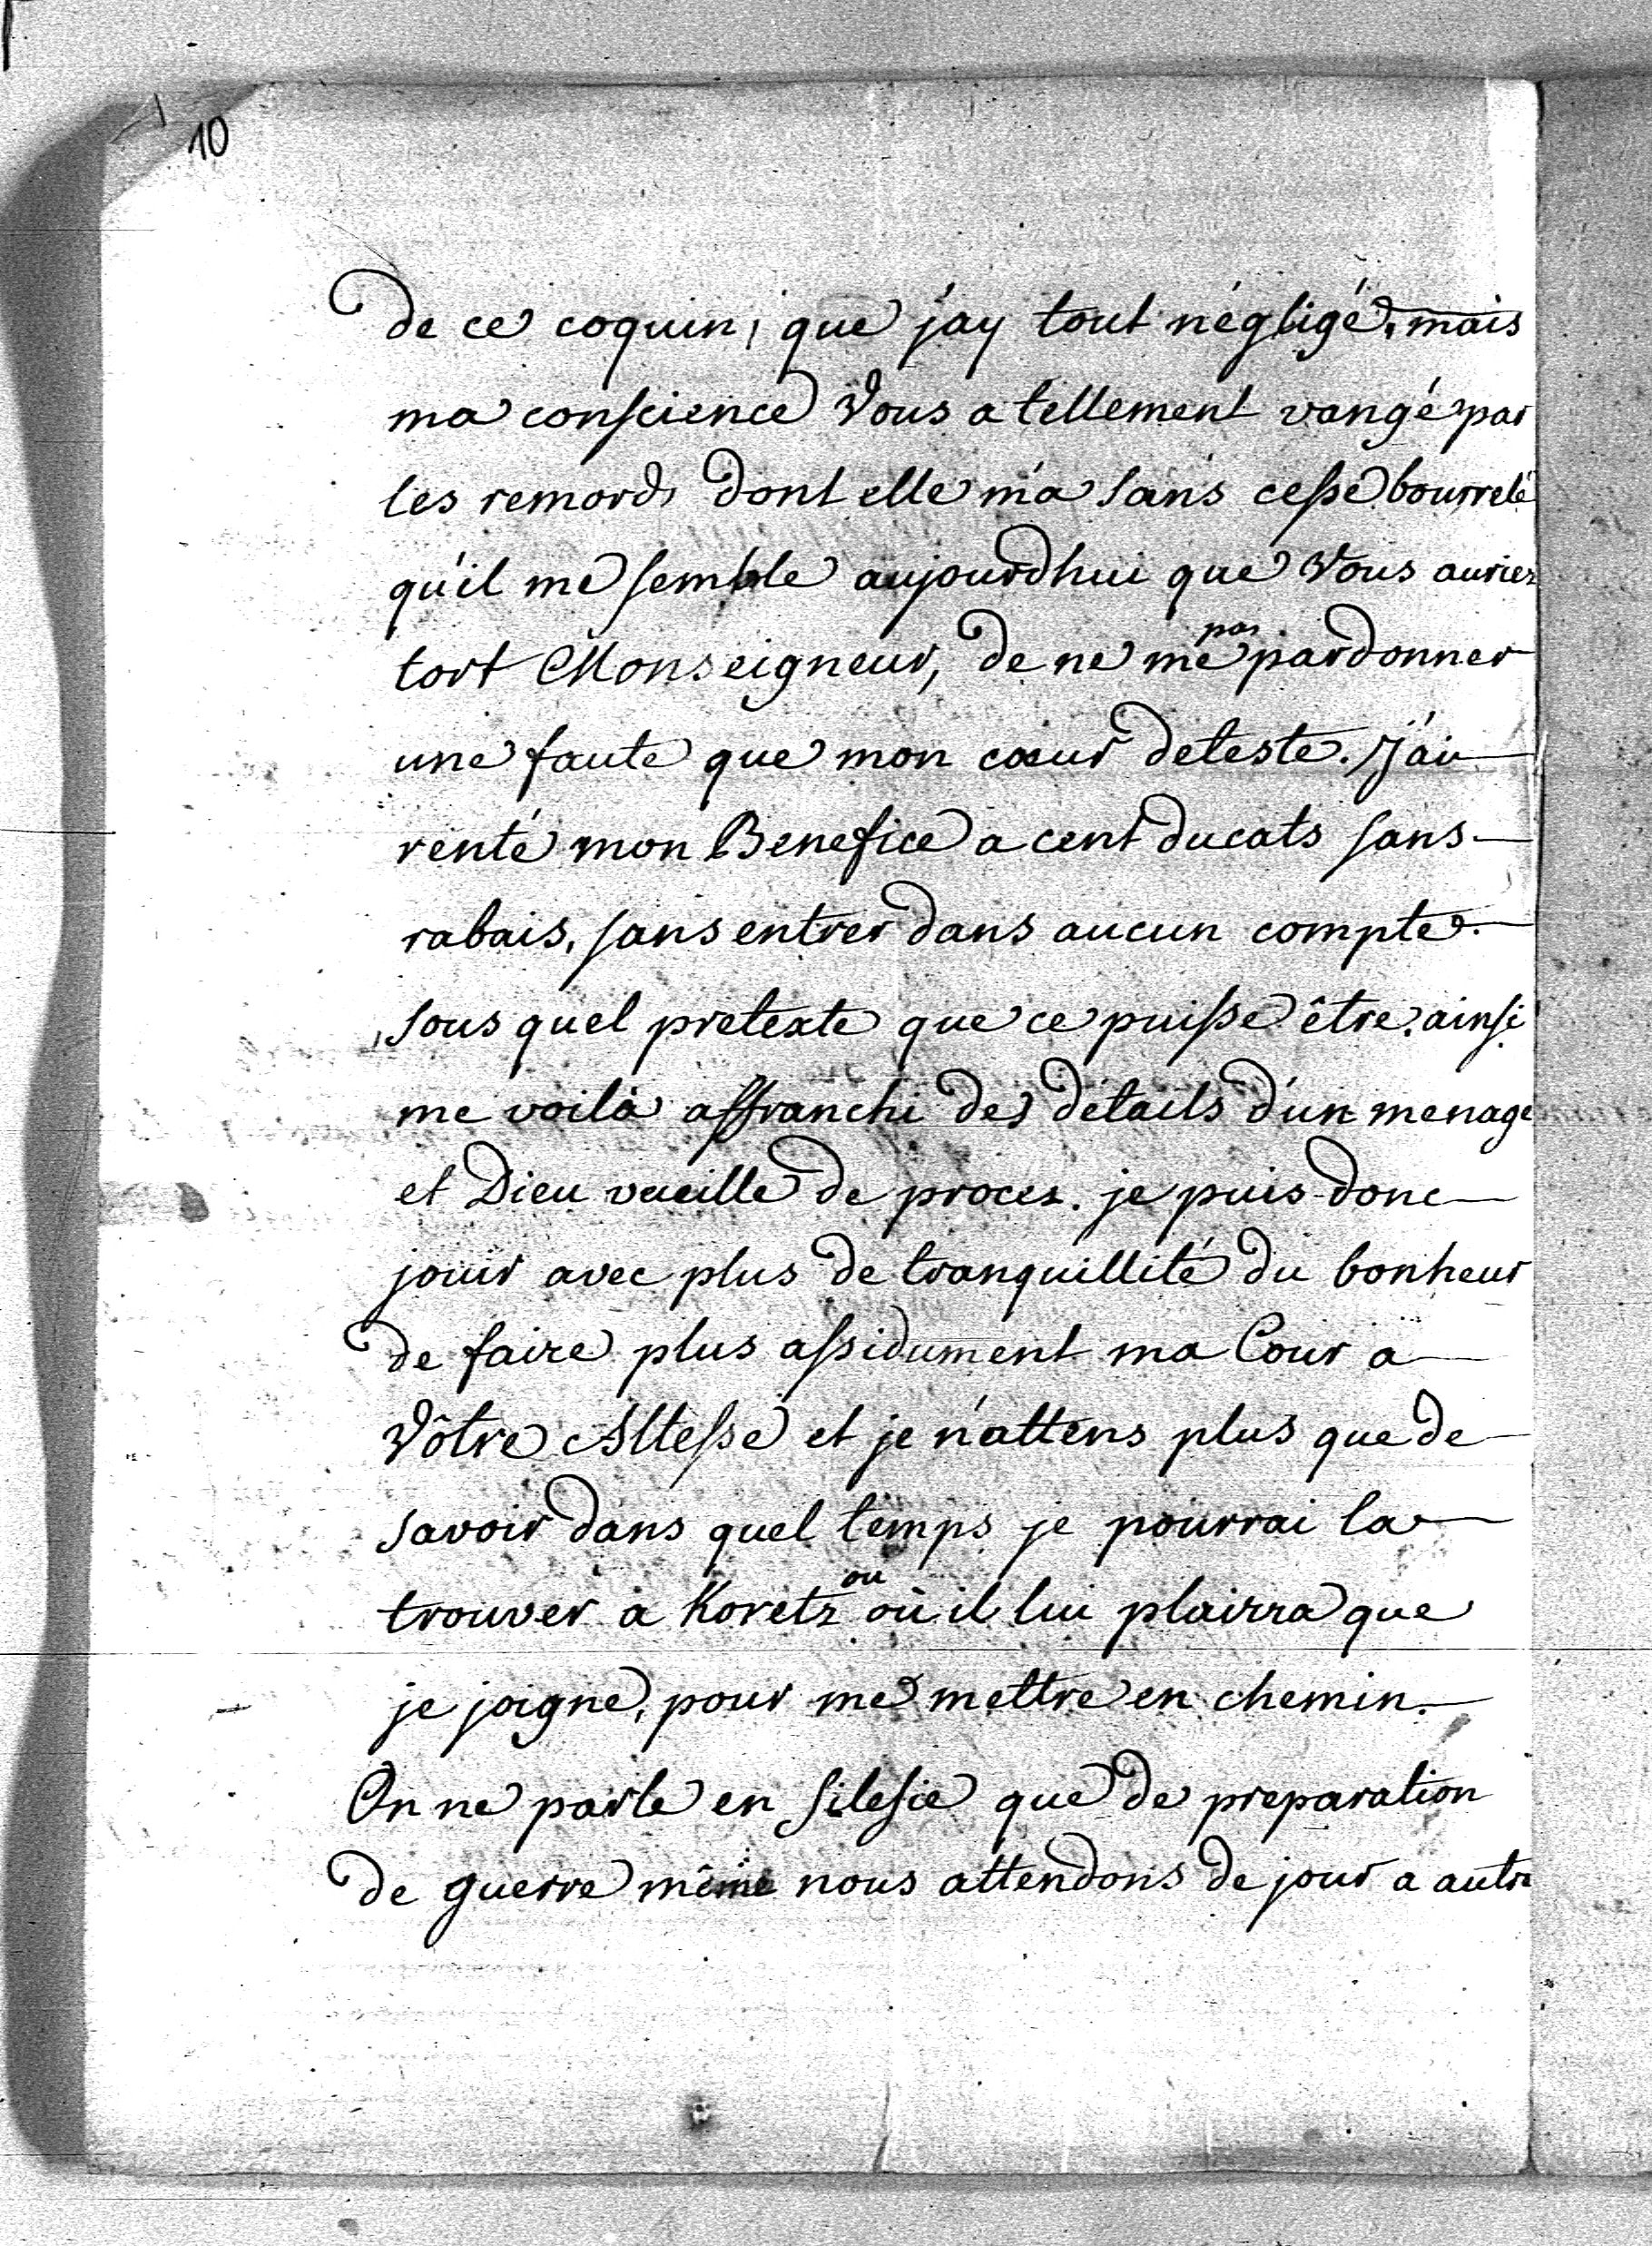 10
de ce coquin, que j'ay tout négligé, mais
ma conscience Vous a tellement vangé par
les remords dont elle m'a sans cesse bourrelé
qu'il me semble aujourdhui que Vous auriez
tort Monseigneur, de ne me pas pardonner
une faute que mon cœur deteste. J'ai
renté mon Benefice a cent ducats sans
rabais, sans entrer dans aucun compte
sous quel pretexte que ce puisse être. ainsi
me voilà affranchi des détails d'un menage
et Dieu veuille de proces. je puis donc
jouir avec plus de tranquillité du bonheur
de faire plus assidument ma Cour a
Vôtre Altesse et je n'attens plus que de
savoir dans quel temps je pourrai la
trouver a Koretz ou où il lui plairra que
je joigne, pour me mettre en chemin.
On ne parle en Silesie que de preparation
de guerre même nous attendons de jour a autre